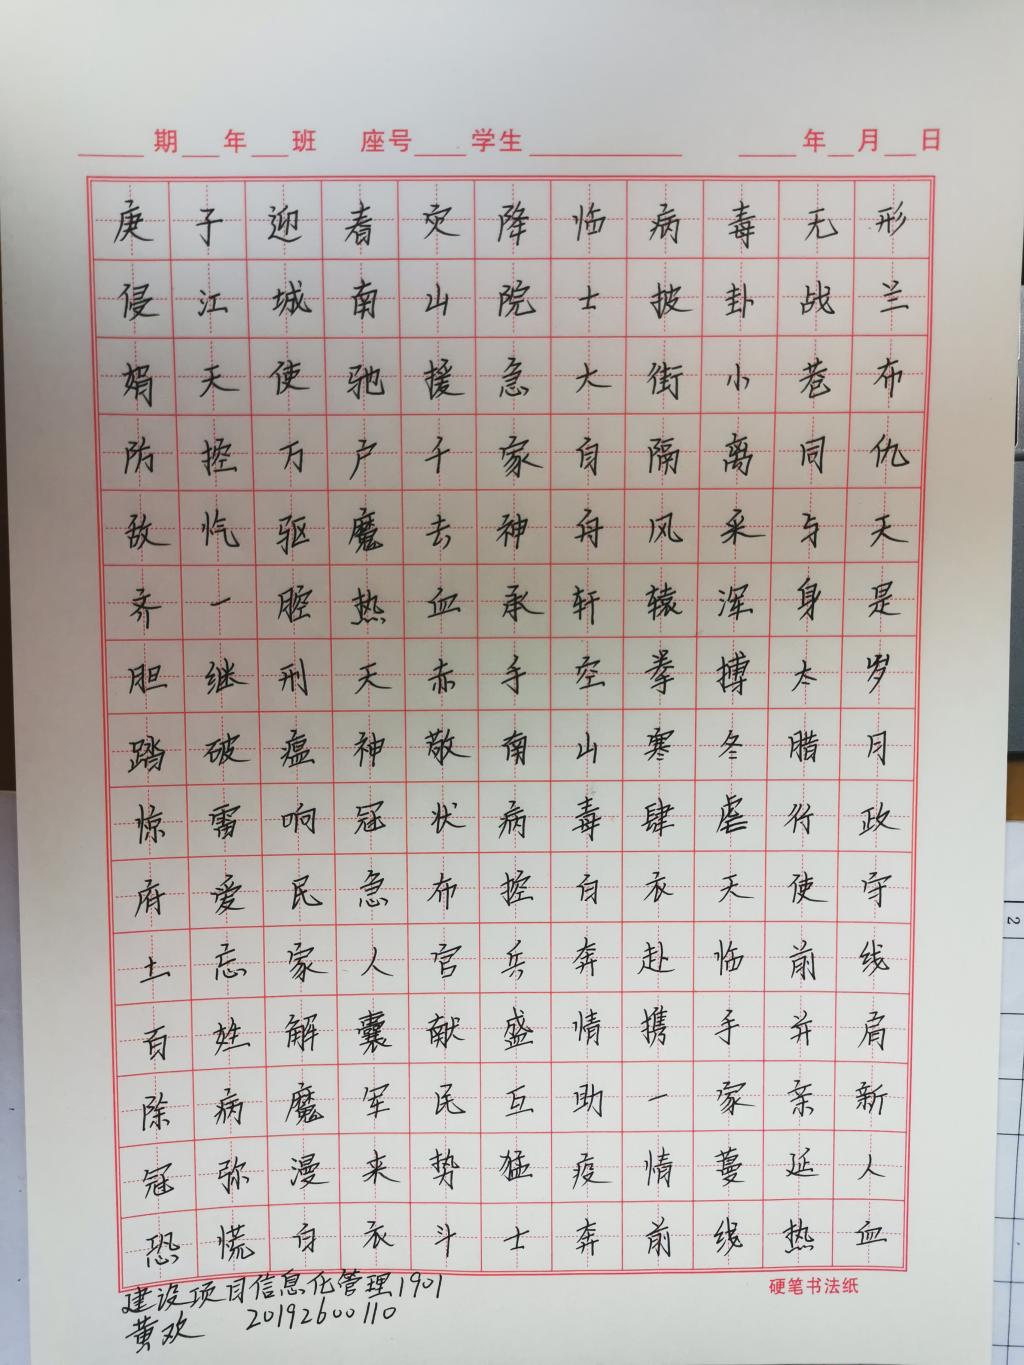 期 年 班 座号 学生 年 月 日
庚子迎春灾降临病毒无形
侵江城南山院士披卦战兰
娟天使驰援急大街小巷布
防控万户千家自隔离同仇
敌忾驱魔去神舟风采与天
齐一腔热血承轩辕浑身是
胆继刑天赤手空拳搏太岁
踏破瘟神敬南山寒冬腊月
惊雷响冠状病毒肆虐行政
府爱民急布控白衣天使守
土忘家人官兵奔赴临前线
百姓解囊献盛情携手并肩
除病魔军民互助一家亲新
冠弥漫来势猛疫情蔓延人
恐慌白衣斗士奔前线热血
硬笔书法纸
建设项目信息化管理1901
黄欢 20192600110
2